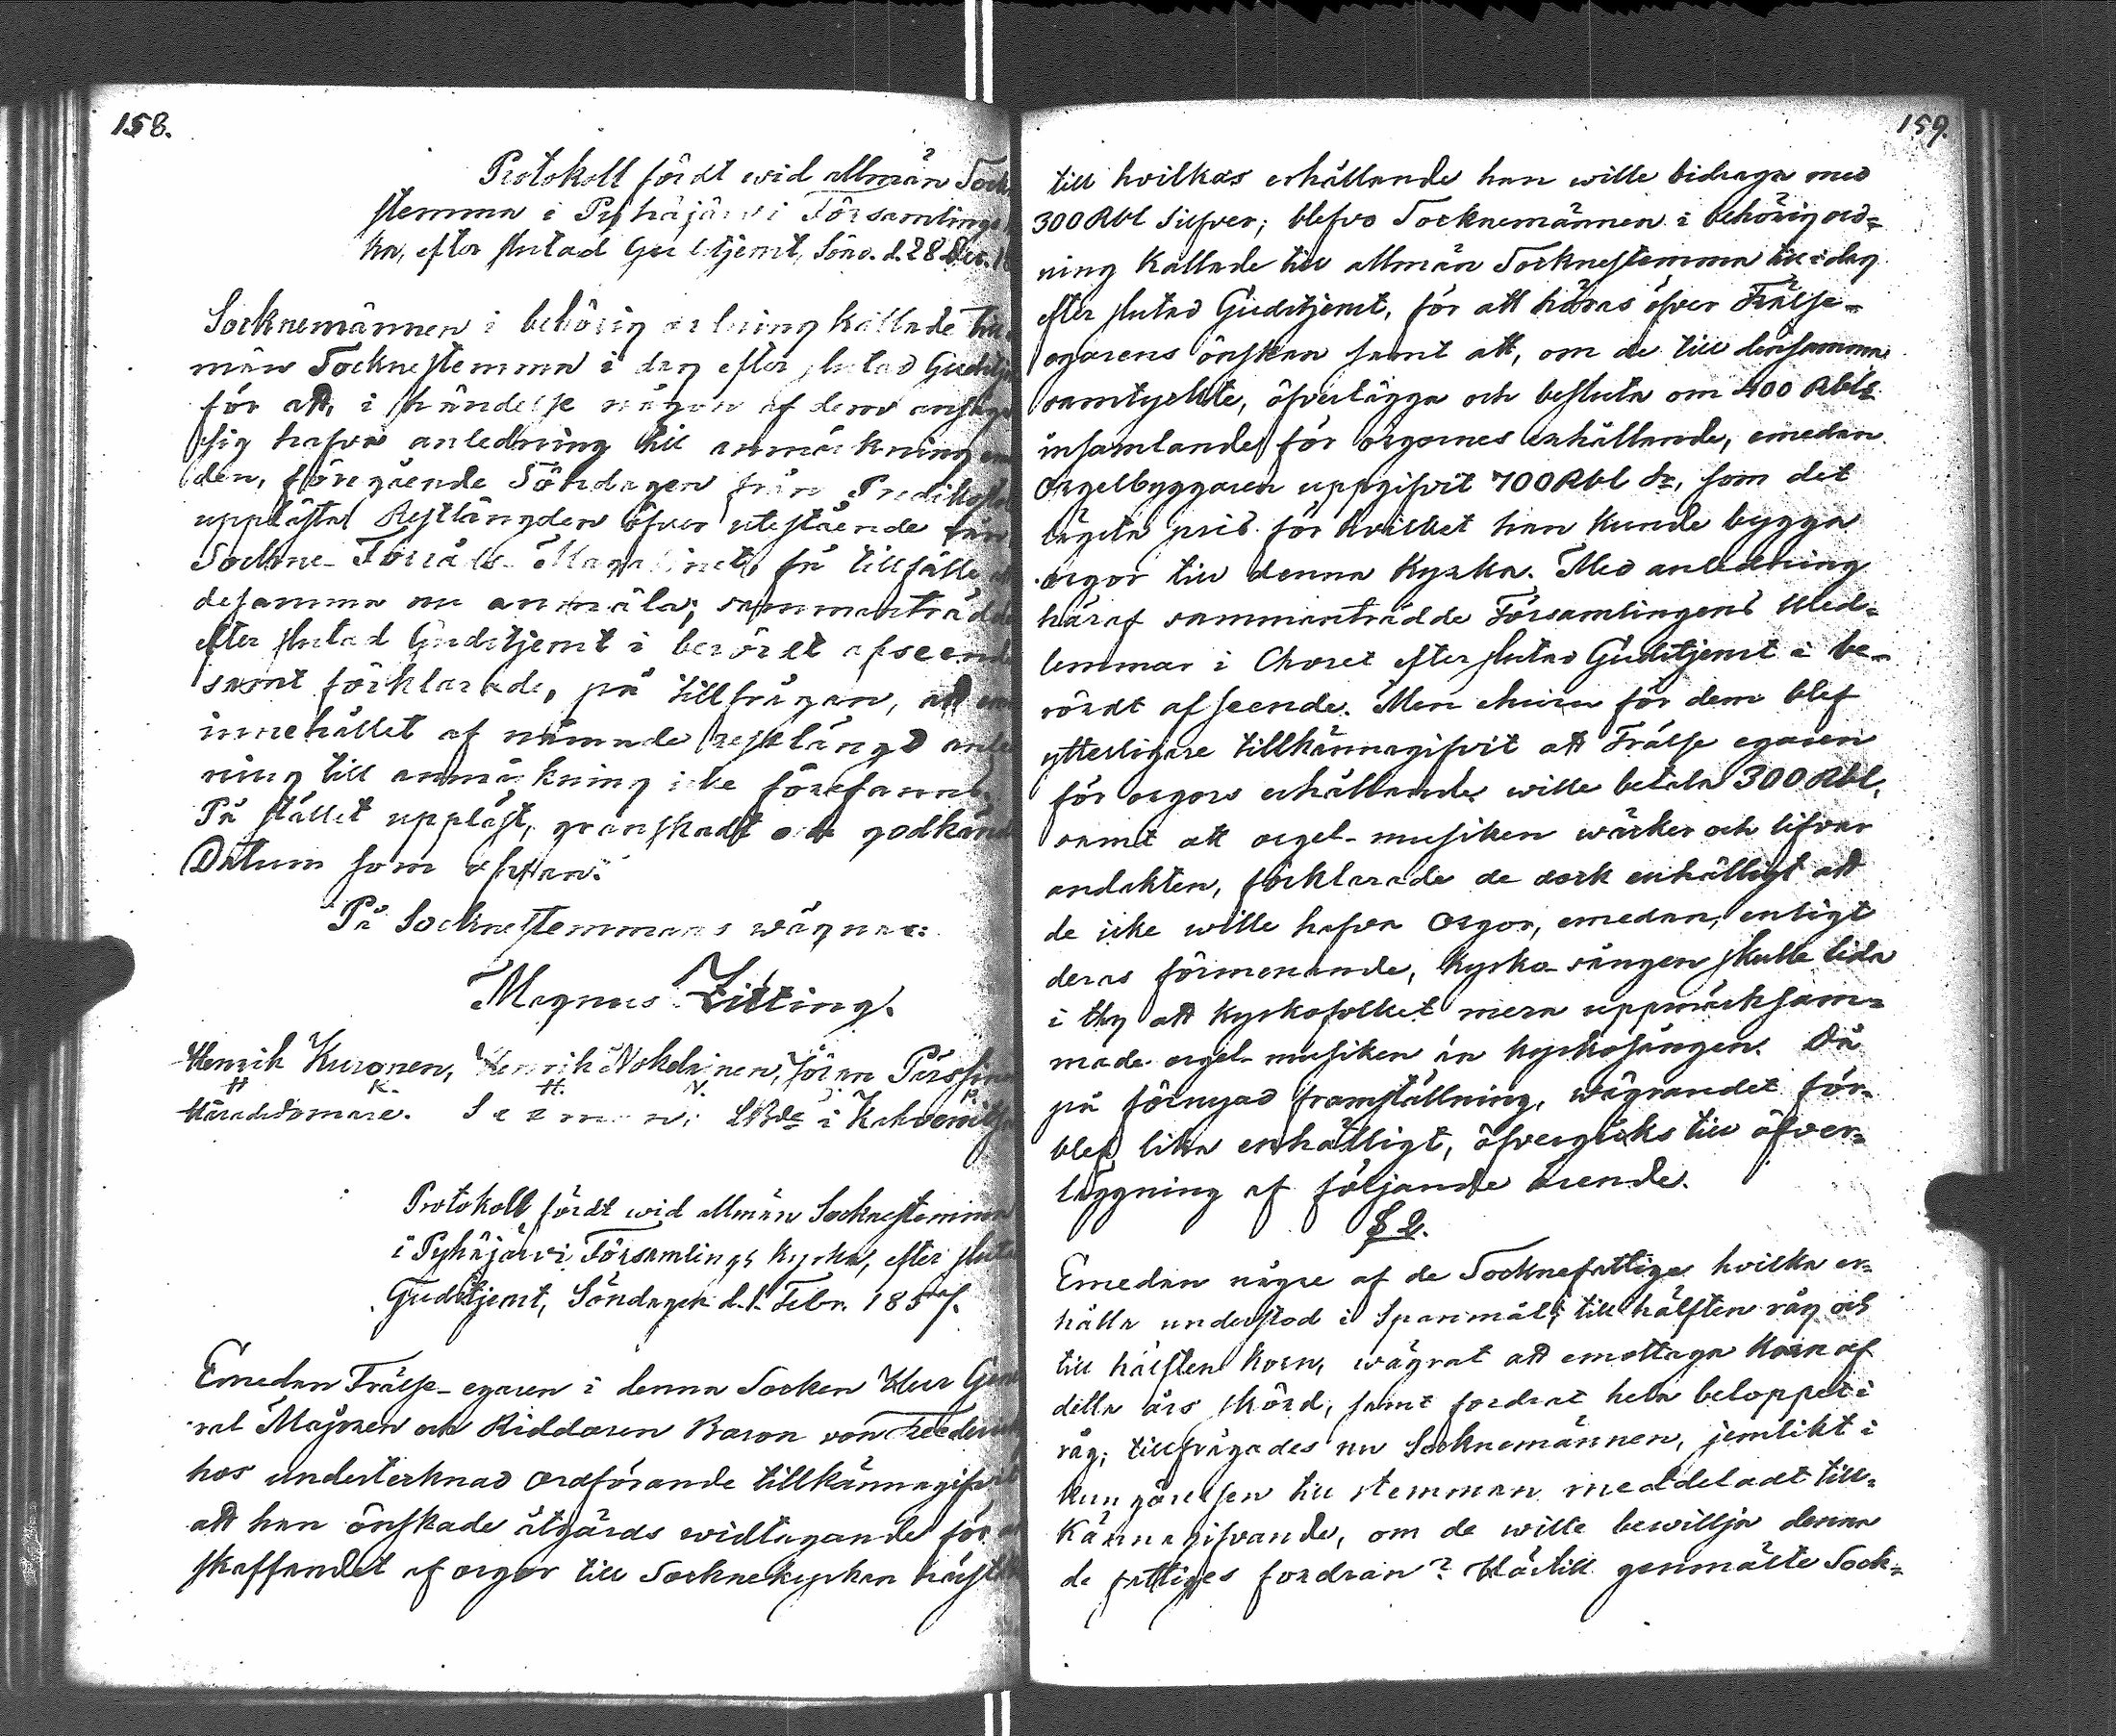 158.
Protokoll fördt wid allmän Sock
stemma i Pyhäjärvi Församlings
ka, efter slutad Gudstjenst, Sönd. d. 28 Dec. 18
Socknemännen i behörig ordning kallade till
män Socknestemma i dag efter slutad Gudstj
för att, i händelse någon af dem anse
sig hafva anledning till anmärkning
den, föregående Söndagen från Predikst
upplästa Restlängden öfver utestående
Sockne-Förråds-Magasinet, få tillfälle
desamma nu anmäla; sammanträdde
efter slutad Gudstjenst i berördt afseende
samt förklarade, på tillfrågan, att
innehållet af nämnde restlängd anled
ning till anmärkning icke förefanns.
På stället uppläst, granskadt och godkändt
Datum som ofvan.
På Socknestemmans wägnar:
Magnus Zitting.
Henrik Kuronen, Henrik Nokelainen, Jöran Pärssin
H K. H. N. J. P.
Häradsdomare. Sexman; LBde i Kahvenitsa
Protokoll, fördt wid allmän Socknestemma
i Pyhäjärvi Församlings kyrka, efter slutad
Gudstjenst, Söndagen d. 1. Febr. 1857.
Emedan Frälse-egaren i denna Socken Herr Gene
ral Majoren och Riddaren Baron von Freeder
hos undertecknad ordförande tillkännagifvit
att han önskade åtgärds widtagande för
skaffandet af orgor till Sockne kyrkan härst
159.
till hvilkas erhållande han wille bidraga med
300 Rbl Silfver; blefvo Socknemännen i behörig ord=
ning kallade till allmän Socknestemma till i dag
efter slutad Gudstjenst, för att höras öfver Frälse-
egarens önskan samt att, om de till densamma
samtyckte, öfverlägga och besluta om 400 Rbls
insamlande för orgornes erhållande, emedan
Orgelbyggaren uppgifvit 700 Rbl Sr, som det
lägsta pris för hvilket han kunde bygga
orgor till denna Kyrka. Med anledning
häraf sammanträdde Församlingens Med=
lemmar i Choret efter slutad Gudstjenst i be-
rördt afseende. Men ehuru för dem blef
ytterligare tillkännagifvit att Frälse egaren
för orgors erhållande wille betala 300 Rbl.
samt att orgel-musiken wäcker och lifvar
andakten, förklarade de dock enhälligt att
de icke wille hafva Orgor, emedan, enligt
deras förmenande, kyrko-sången skulle lida
i thy att kyrkofolket mera uppmärksam=
made orgel-musiken än kyrkosången. Då
på förnyad framställning, wägrandet för-
blef lika enhälligt, öfvergicks till öfver=
läggning af följande ärende.
§ 2.
Emedan någre af de Socknefattige hvilka er=
hålla understöd i Spanmål, till hälften råg och
till hälften korn, wägrat att emottaga korn af
detta års skörd, samt fordrat hela beloppet i
råg; tillfrågades nu Socknemännen, jemlikt i
kungörelsen till stemman meddeladt till=
kännagifvande, om de wille bewillja denna
de fattiges fordran? Härtill genmälte Sock=